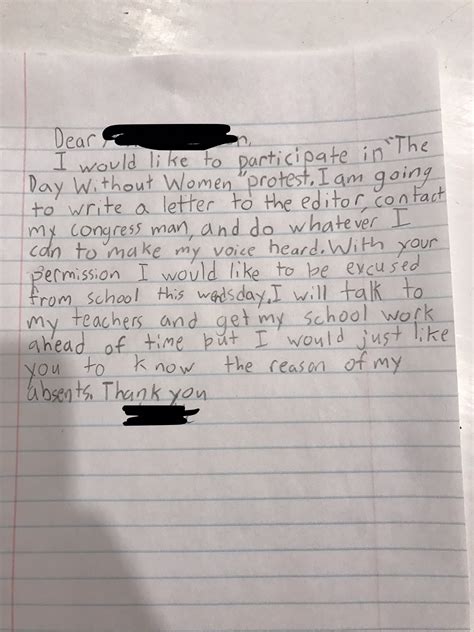 Dear n,
I would like to participate in "The
Day Without Women" protest. I am going
to write a letter to the editor, contact
my congress man, and do whatever I
can to make my voice heard. With your
permission I would like to be excused
from school this wedsday. I will talk to
my teachers and get my school work
ahead of time but I would just like
you to know the reason of my
absents. Thank you